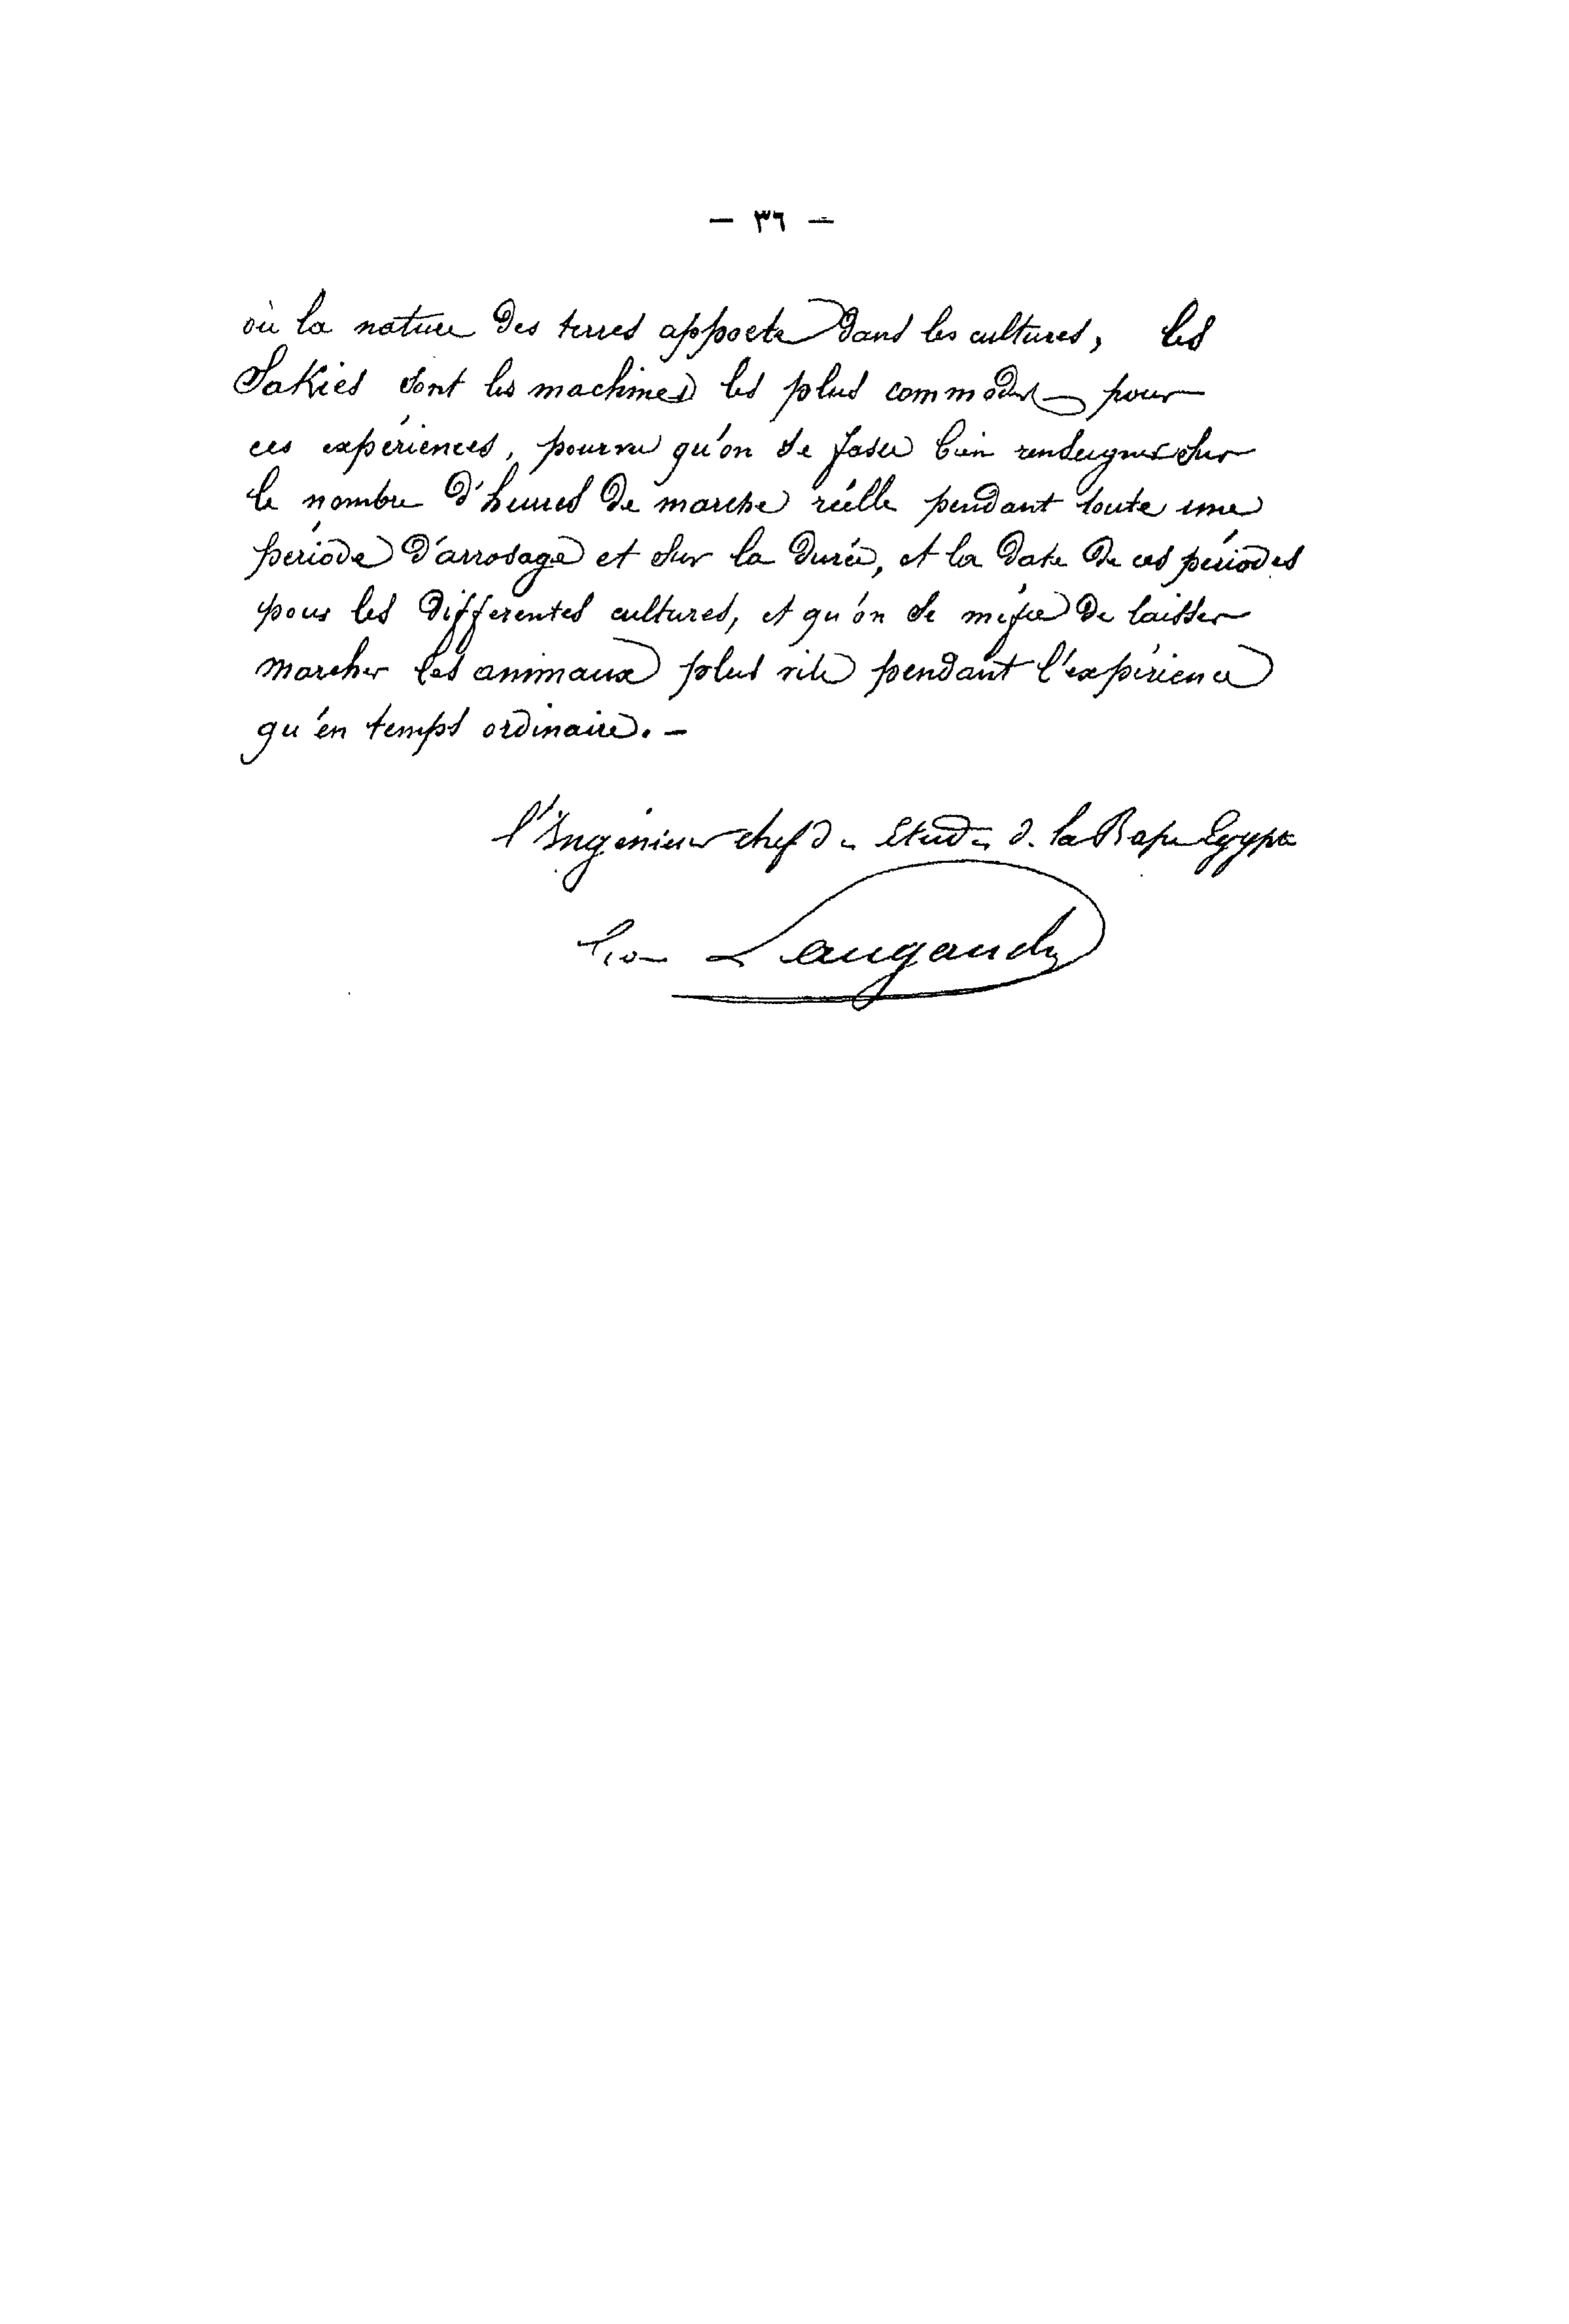 — ٣٦ —
où la nature des terres apporte dans les cultures, les
Sakies sont les machines les plus commodes pour
ces expériences, pourvu qu'on se fasse bien renseigner sur
le nombre d'heures de marche réelle pendant toute une
période d'arrosage et sur la durée, et la date de ces périodes
pour les différentes cultures, et qu'on se méfie de laisser
marcher les animaux plus vite pendant l'expérience
qu'en temps ordinaire. —
l'Ingénieur chef des Etudes de la Basse Egypte